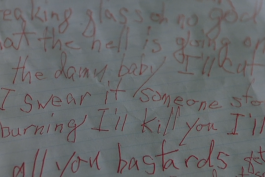 eaking glass no god
at the hell is going on
the damn baby I'll cut
I swear it someone sto
burning I'll kill you I'll
all you bastards